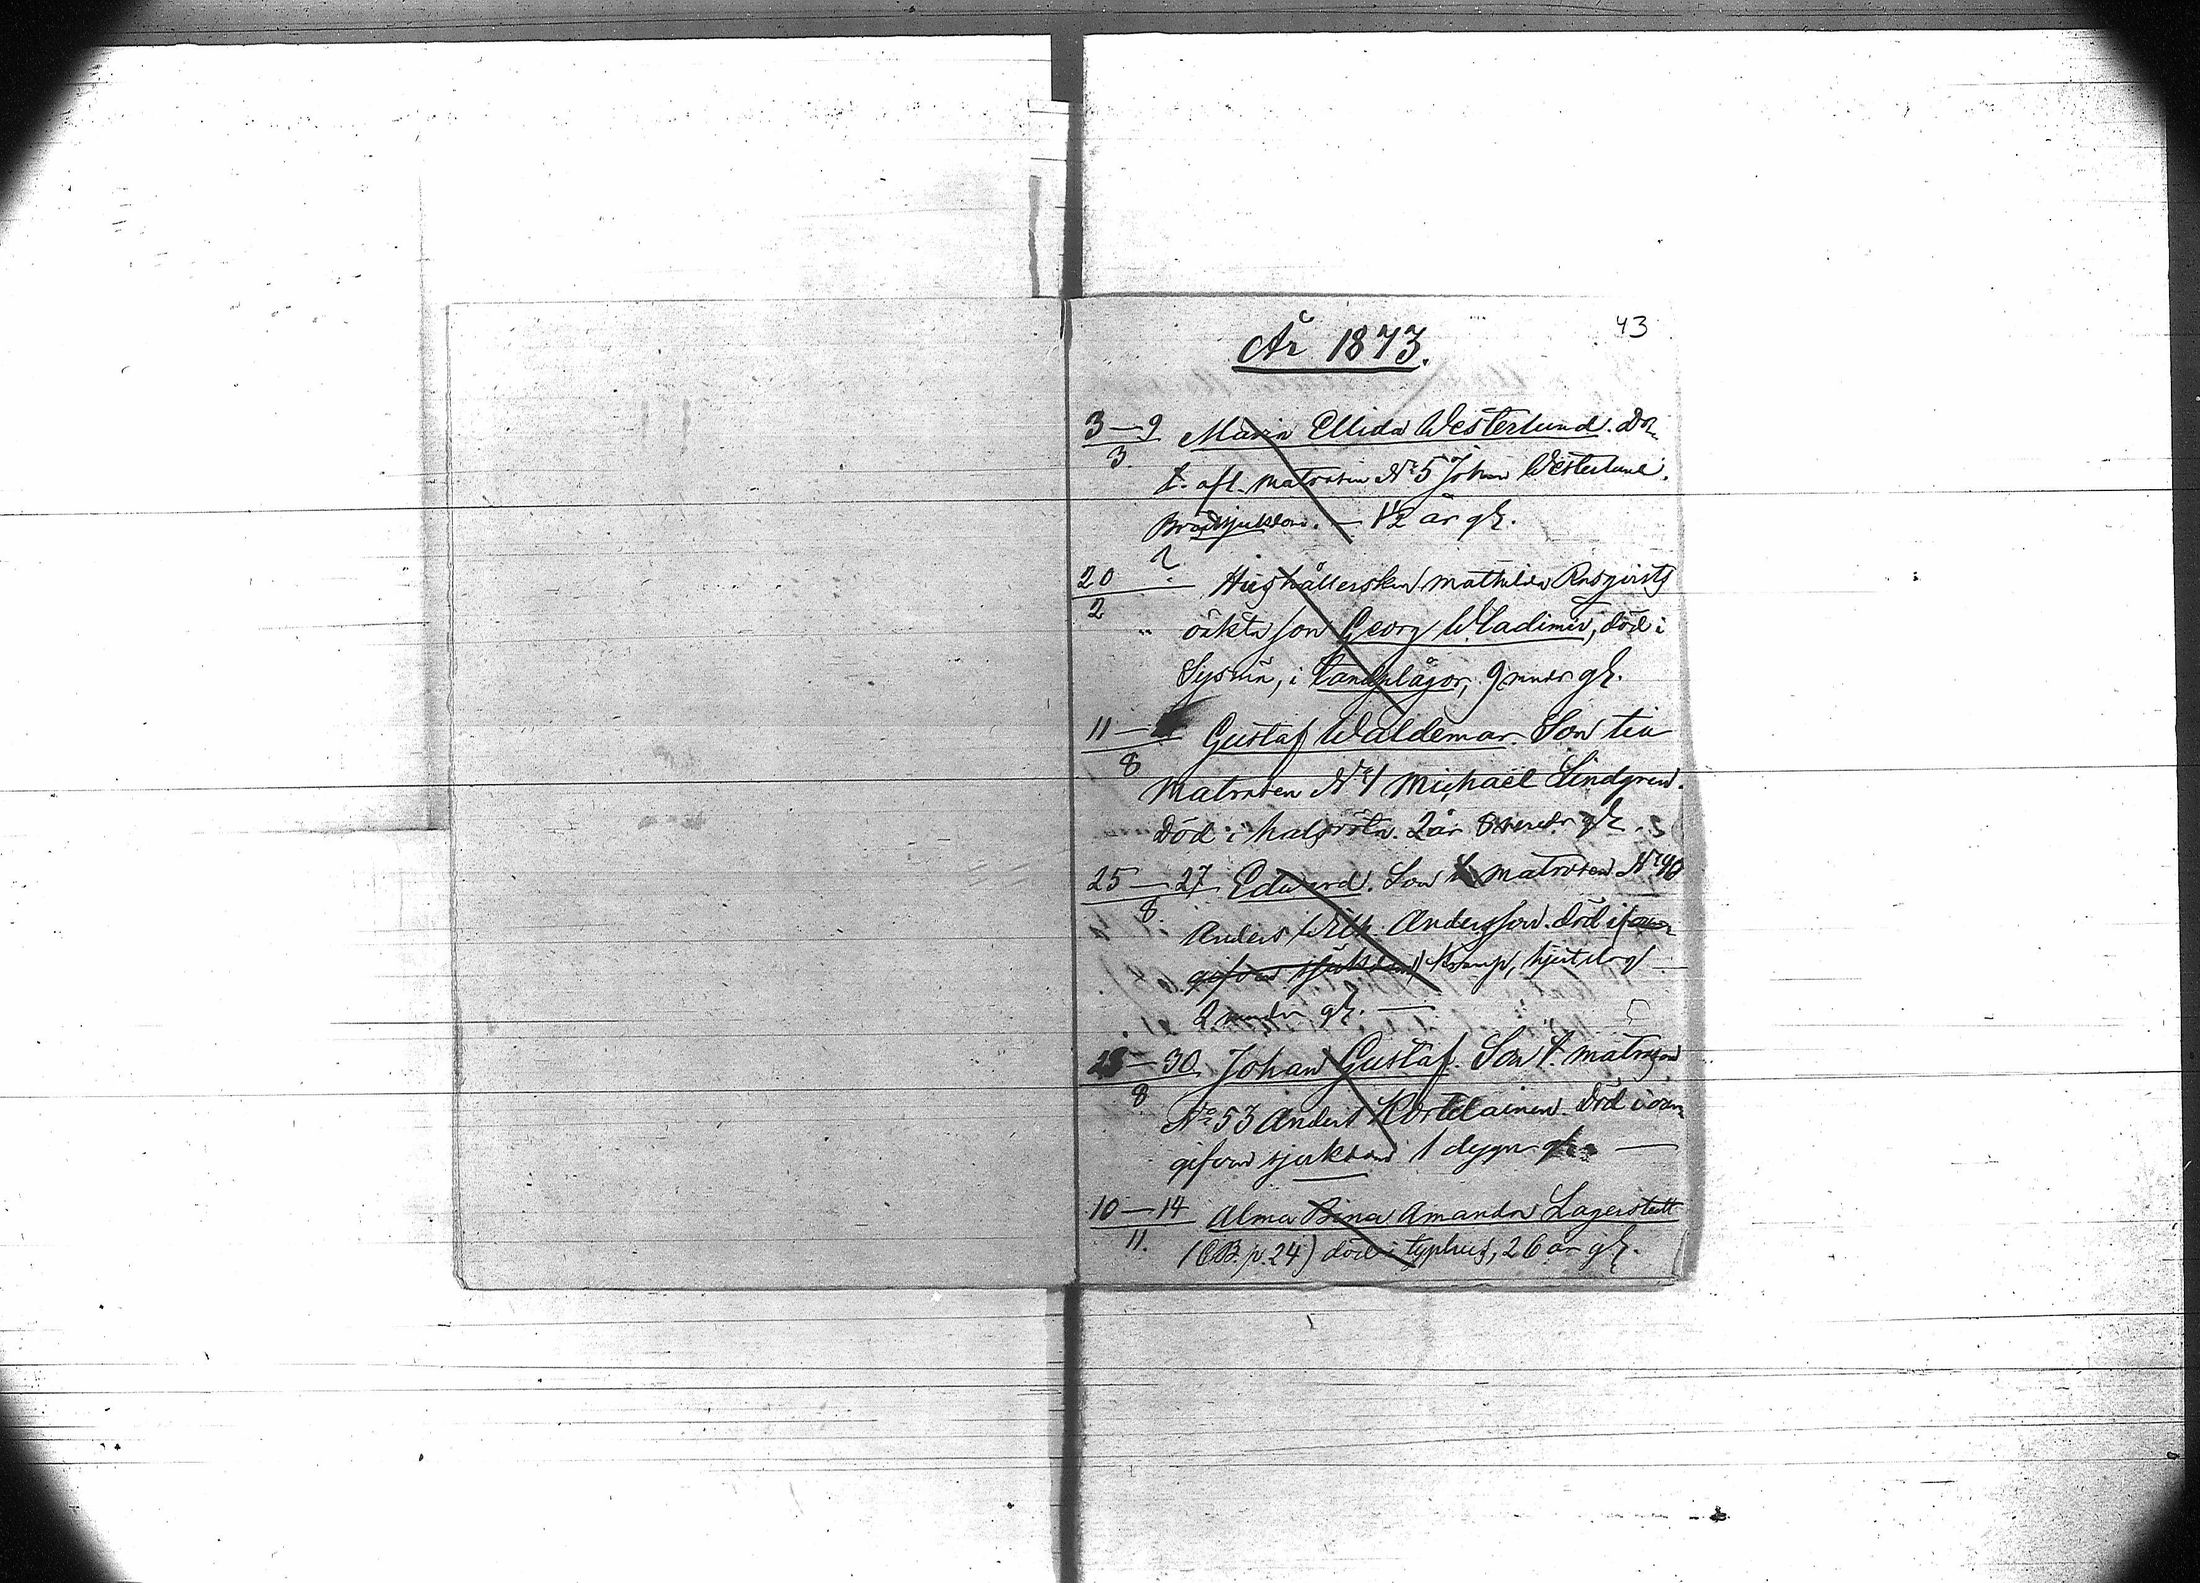 43
År 1873.
3—9 Maria Ellida Westerlund. Do-
3.
t. afl. matrosen No 5 Johan Westerlund.
Brådsjukdom. — 1½ år gl.
20 ?
2 Hushållerskan Mathilda Rosqvists
oäkta son Georg Wladimir, död i
i tandplågor, 9 mndr gl.
11— Gustaf Waldemar. Son till
8
Matrosen No 1 Michael Lindgren.
Död i halsröta. 2 år 8 mndr gl.
25—27 Edvard. Son t. matrosen No 90
8.
Anders Wilh. Andersson. Död i oan-
gifven sjukdom kramp,
2 mndr gl. —
28—30 Johan Gustaf. Son t. matrosen
8
No 53 Anders Kortelainen. Död i oan-
gifven sjukdom 1 dygn gl. —
10—14 Alma Bina Amanda Lagerstedt
11.
(CB. p. 24) död i typhus, 26 år gl.